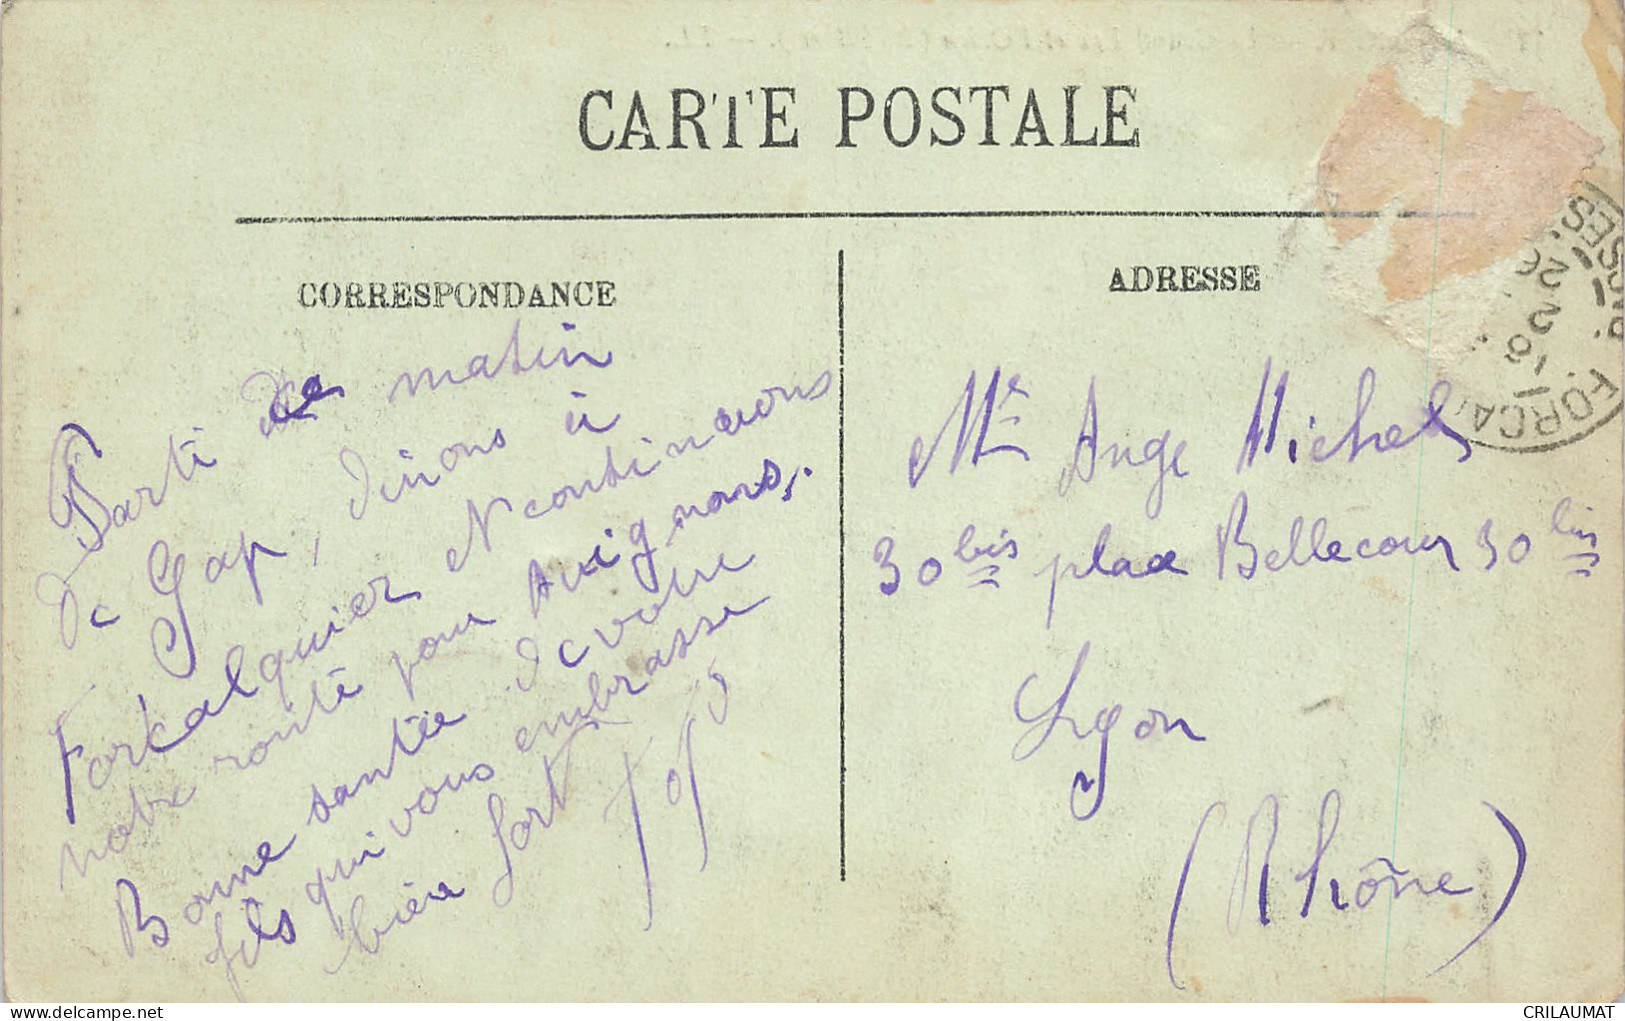 CARTE POSTALE
CORRESPONDANCE
Parti ce matin
de Gap, dinons à
Forkalquier N continuons
notre route pour Avignons.
Bonne santée de votre
fils qui vous embrasse
bien fort
ADRESSE
Mr Ange Michel
30 bis place Bellecour 30 bis
Lyon
(Rhône)
FORCA
BSES
26
delcampe.net
CRILAUMAT